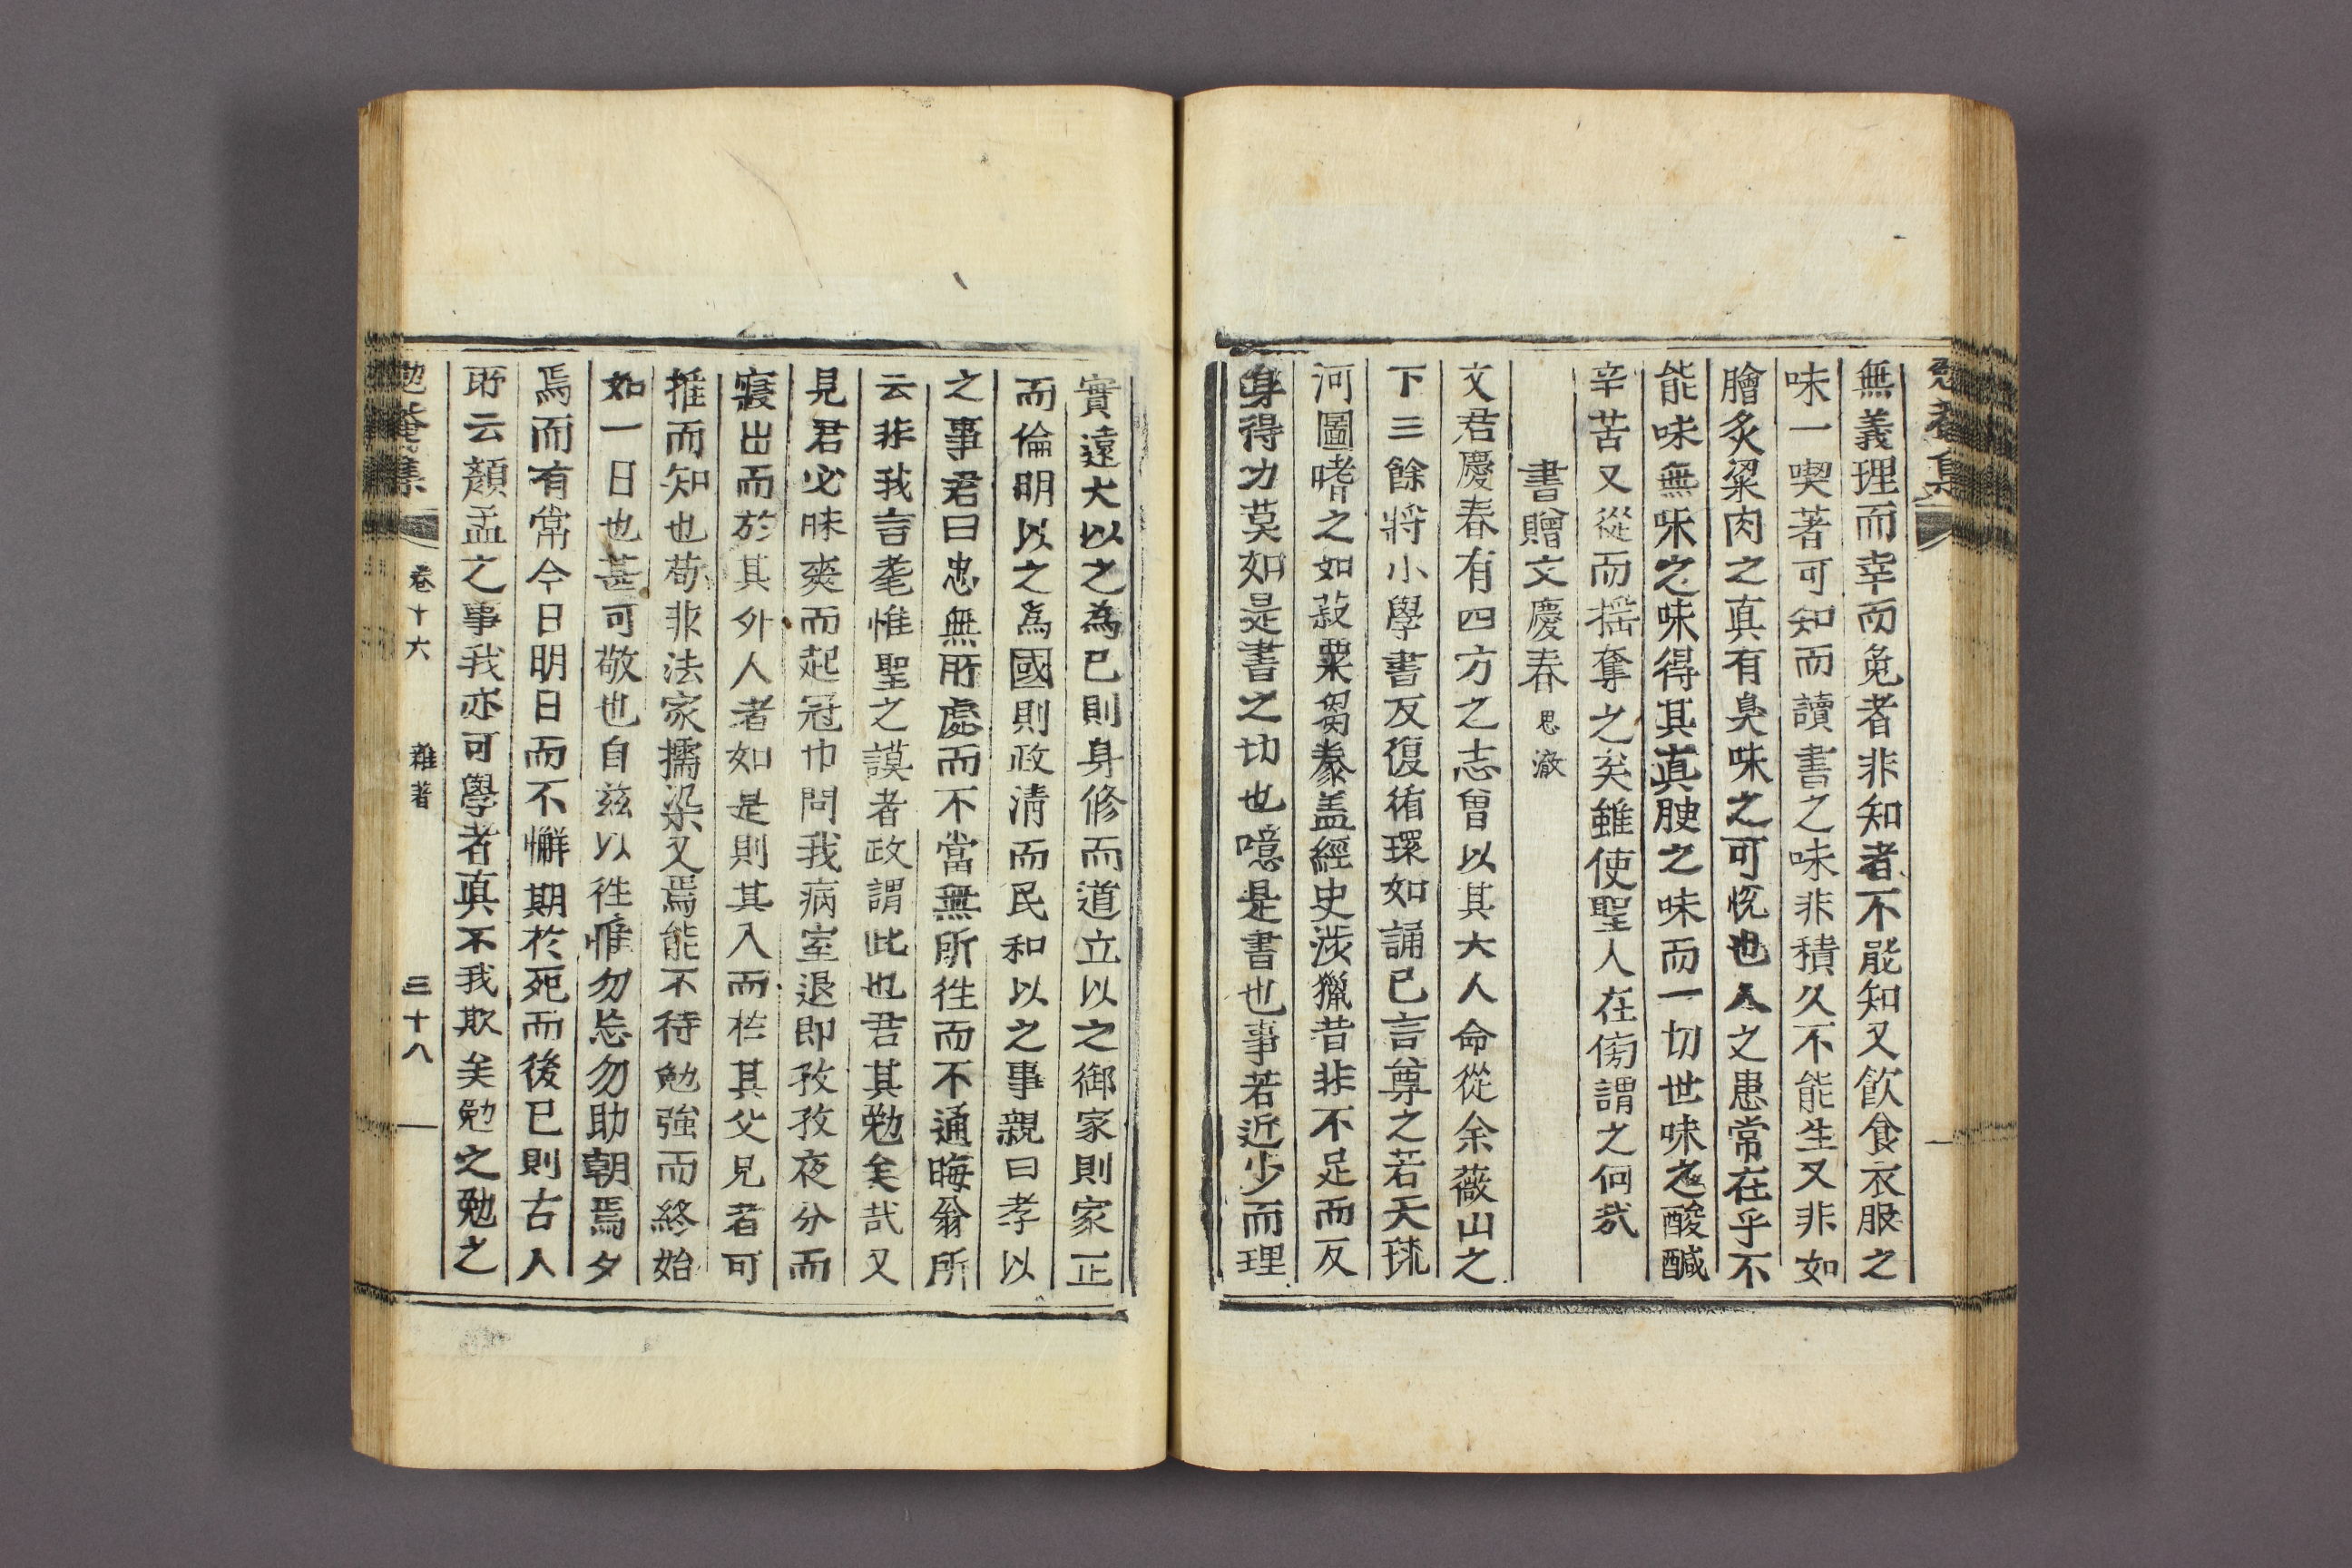 無義理而幸而免者非知者不能知又飮食衣服之
味一喫著可知而讀書之味非積久不能生又非如
膾炙粱肉之真有臭味之可悅也人之患常在乎不
能味無味之味得其真腴之味而一切世味之酸醎
辛苦又從而搖奪之矣雖使聖人在傍謂之何㢤
書贈文慶春思澈
文君慶春有四方之志曾以其大人命從余薇山之
下三餘將小學書反復循環如誦己言尊之若天球
河圖嗜之如菽粟芻豢盖經史涉獵昔非不足而反
身得力莫如是書之切也噫是書也事若近少而理
實遠大以之為己則身修而道立以之御家則家正
而倫明以之爲國則政淸而民和以之事親曰孝以
之事君曰忠無所處而不當無所徃而不通晦翁所
云非我言耄惟聖之謨者政謂此也君其勉矣哉又
見君必昧爽而起冠巾問我病室退即孜孜夜分而
寢出而於其外人者如是則其入而於其父兄者可
推而知也苟非法家擩染又焉能不待勉強而終始
如一日也甚可敬也自玆以徃惟勿忘勿助朝焉夕
焉而有常今日明日而不懈期於死而後已則古人
所云顏孟之事我亦可學者真不我欺矣勉之勉之
勉菴集 卷十六 雜著 三十八